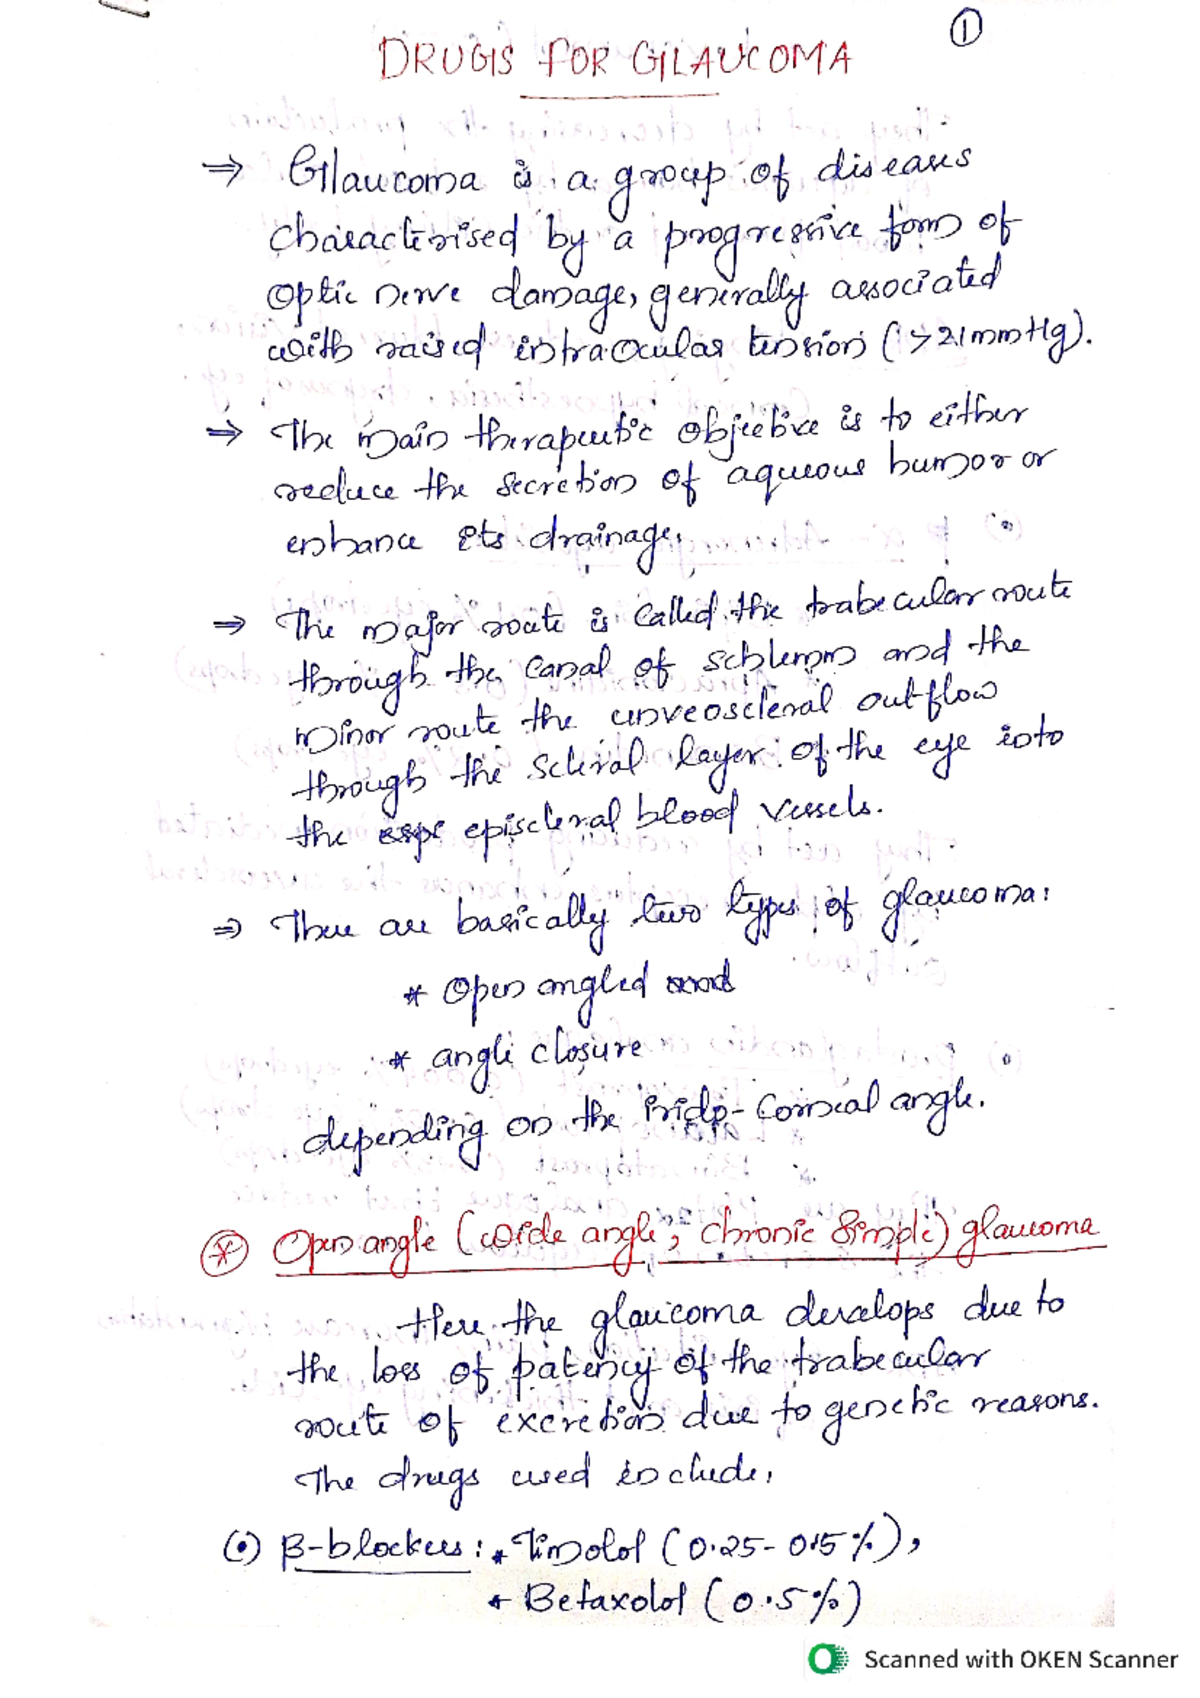 ①
DRUGS FOR GLAUCOMA
⇒ Glaucoma is a group of diseases
characterised by a progressive form of
optic nerve damage, generally associated
with raised intraocular tension (>21mmHg).
⇒ The main therapeutic objective is to either
reduce the secretion of aqueous humor or
enhance its drainage.
⇒ The major route is called the trabecular route
through the canal of schlemm and the
minor route the unveoscleral outflow
through the scleral layer of the eye into
the episcleral blood vessels.
⇒ There are basically two types of glaucoma:
* Open angled
* angle closure
depending on the irido-corneal angle.
* Open angle (wide angle, chronic simple) glaucoma
Here the glaucoma develops due to
the loss of patency of the trabecular
route of excretion due to genetic reasons.
The drugs used include,
(•) β-blockers: * Timolol (0.25-0.5%),
* Betaxolol (0.5%)
Scanned with OKEN Scanner